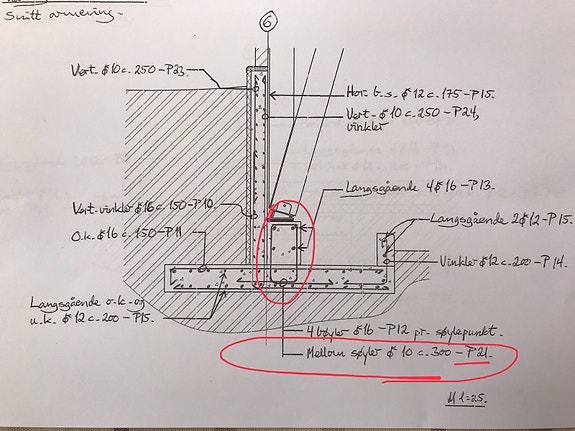 Snitt armering.
6
Vert. ϕ10 c. 250 - P23
Hor. b.s. ϕ12 c. 175 - P15.
Vert. ϕ10 c. 250 - P24,
vinkler
Langsgående 4ϕ16 - P13.
Vert. vinkler ϕ16 c. 150 - P10
O.k. ϕ16 c. 150 - P11
Langsgående 2ϕ12 - P15.
Vinkler ϕ12 c. 200 - P14.
Langsgående o.k. og
u.k. ϕ12 c. 200 - P15.
4 bøyler ϕ16 - P12 pr. søylepunkt.
Mellom søyler ϕ10 c. 300 - P21.
M 1=25.